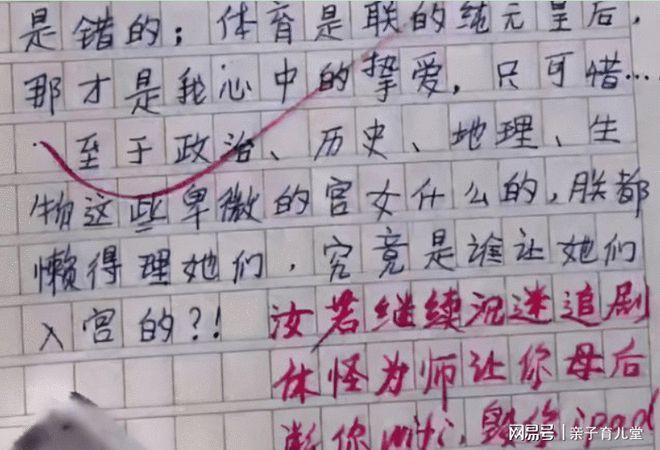 是错的；体育是联的纯元皇后，
那才是我心中的挚爱，只可惜…
至于政治、历史、地理、生
物这些卑微的宫女什么的，朕都
懒得理她们，究竟是谁让她们
入宫的？！ 汝若继续沉迷追剧
休怪为师让你母后
断你wifi，毁你ipad
网易号 | 亲子育儿堂